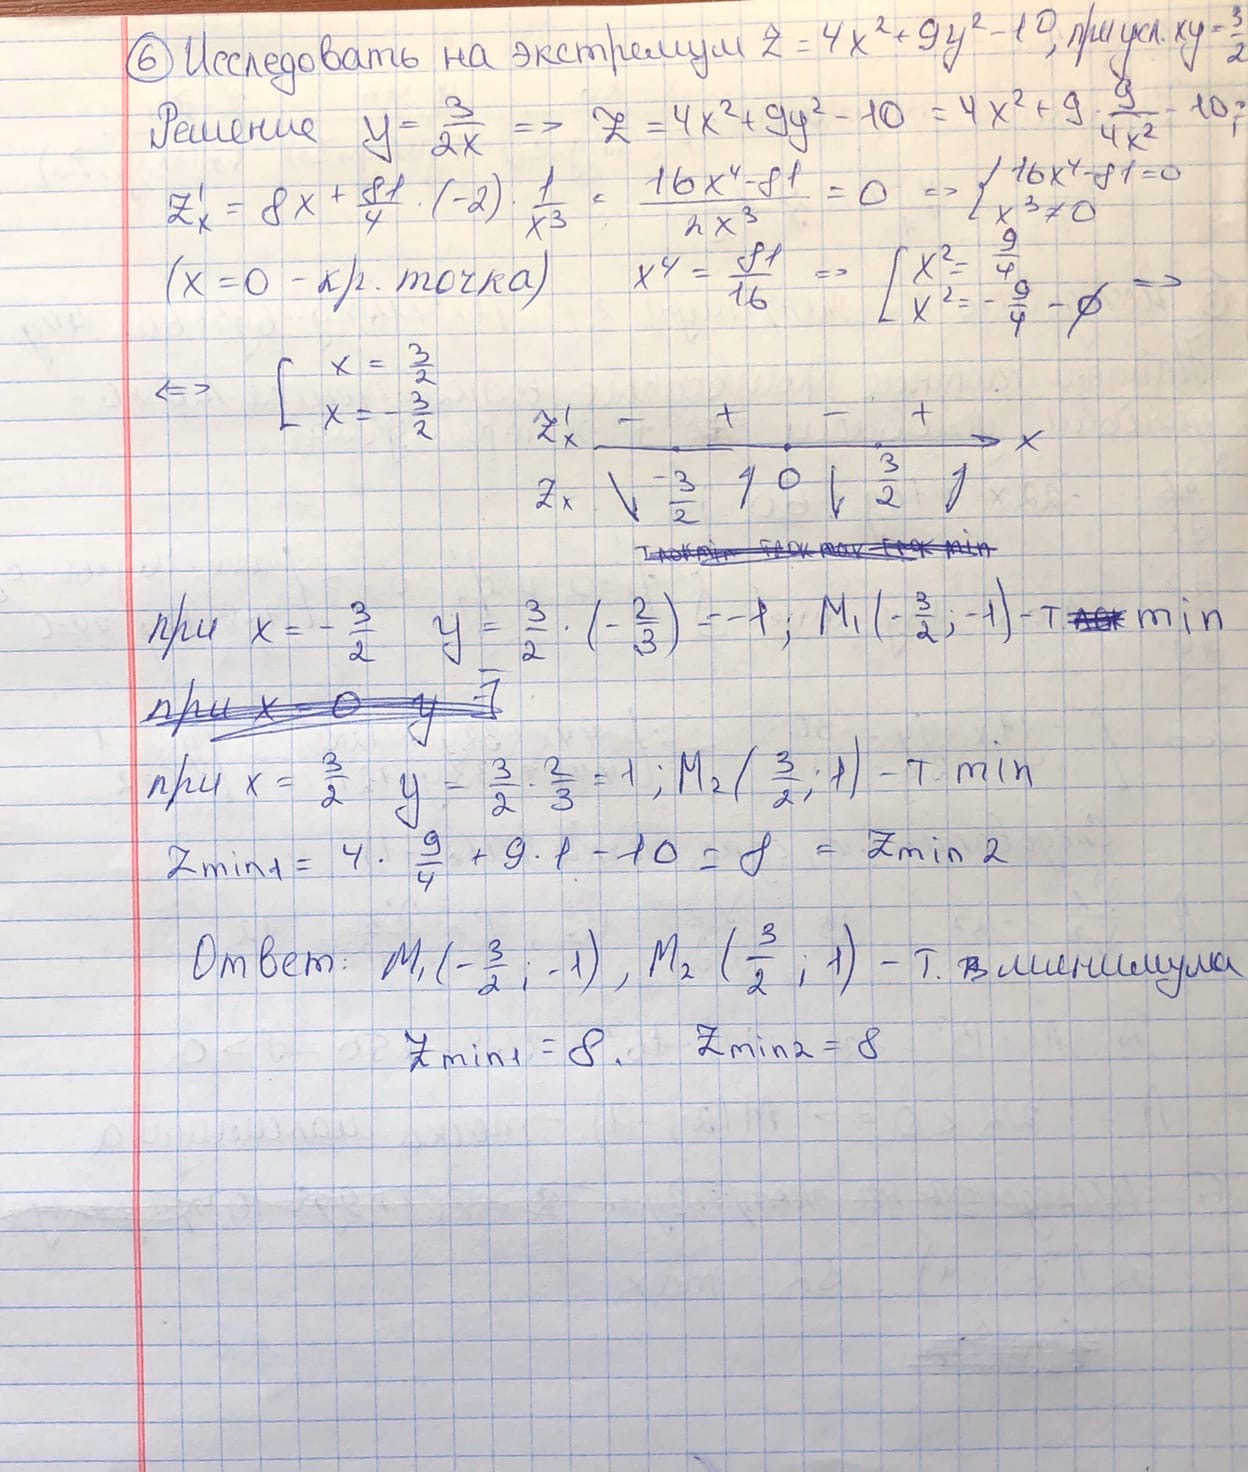 ⑥ Исследовать на экстремум z = 4x² + 9y² - 10, при усл. xy = 3/2
Решение y = 3/2x => z = 4x² + 9y² - 10 = 4x² + 9 · 9/4x² - 10;
z'x = 8x + 81/4 · (-2) · 1/x³ = 16x⁴-81/2x³ = 0 => { 16x⁴-81=0
x³≠0
(x=0 - кр. точка) x⁴ = 81/16 => [ x² = 9/4
x² = -9/4 - ∅ =>
<=> [ x = 3/2
x = -3/2
z'x - + - + x
zx ↘ -3/2 ↗ 0 ↘ 3/2 ↗
при x = -3/2 y = 3/2 · (-2/3) = -1; M₁(-3/2; -1) - т. min
при x = 0 y =
при x = 3/2 y = 3/2 · 2/3 = 1; M₂(3/2; 1) - т. min
zmin1 = 4 · 9/4 + 9 · 1 - 10 = 8 = zmin2
Ответ: M₁(-3/2; -1), M₂(3/2; 1) - т. минимума
zmin1 = 8. zmin2 = 8